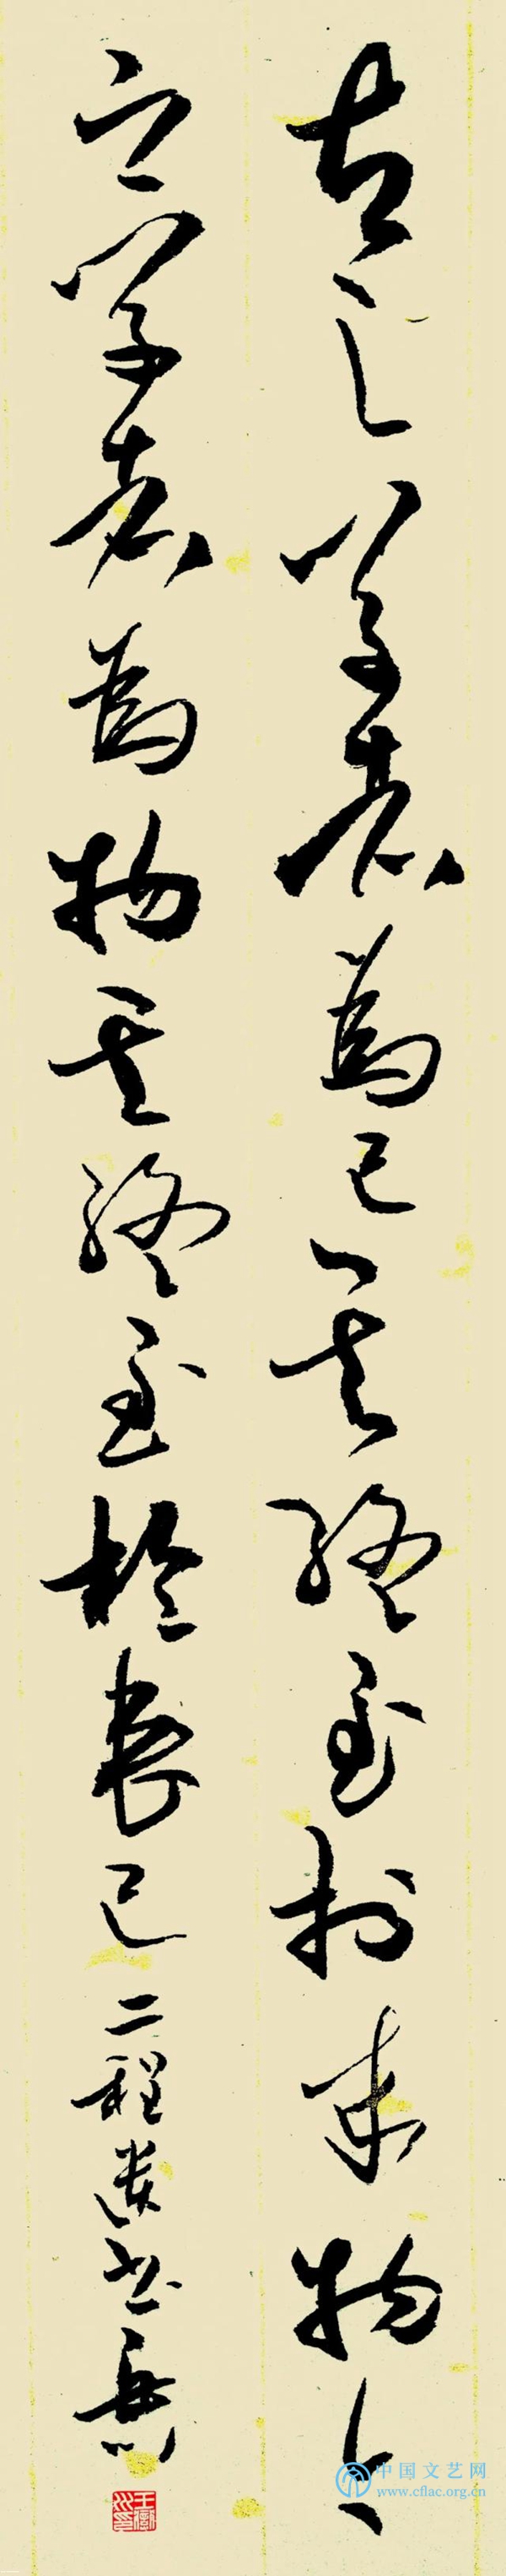 古之學者為己其終至於成物今
之學者為物其終至於喪己二程遺書
中国文艺网
www.cflac.org.cn